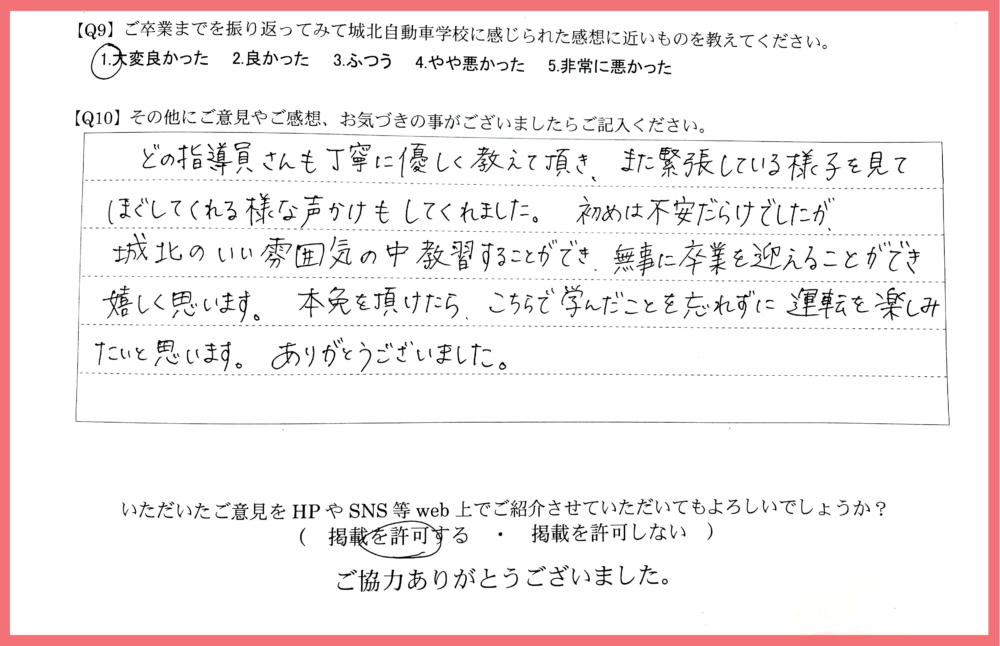 【Q9】ご卒業までを振り返ってみて城北自動車学校に感じられた感想に近いものを教えてください。
1.大変良かった 2.良かった 3.ふつう 4.やや悪かった 5.非常に悪かった
【Q10】その他にご意見やご感想、お気づきの事がございましたらご記入ください。
どの指導員さんも丁寧に優しく教えて頂き、また緊張している様子を見て
ほぐしてくれる様な声かけもしてくれました。 初めは不安だらけでしたが、
城北のいい雰囲気の中教習することができ、無事に卒業を迎えることができ
嬉しく思います。 本免を頂けたら、こちらで学んだことを忘れずに運転を楽しみ
たいと思います。 ありがとうございました。
いただいたご意見をHPやSNS等web上でご紹介させていただいてもよろしいでしょうか?
( 掲載を許可する ・ 掲載を許可しない )
ご協力ありがとうございました。